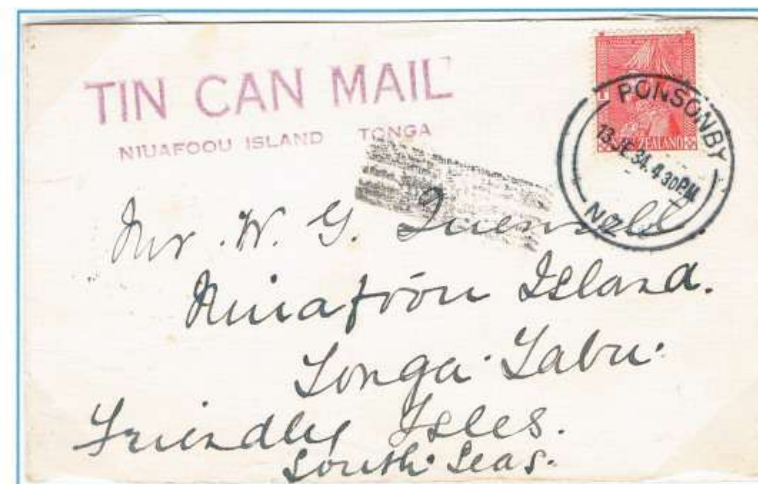 TIN CAN MAIL
NIUAFOOU ISLAND TONGA
PONSONBY
13 JE 34. 4 30 PM
N.Z.
ZEALAND
Mr. W. G. Quensell.
Niuafoou Island.
Tonga. Tabu.
Friendly Isles.
South. Seas.